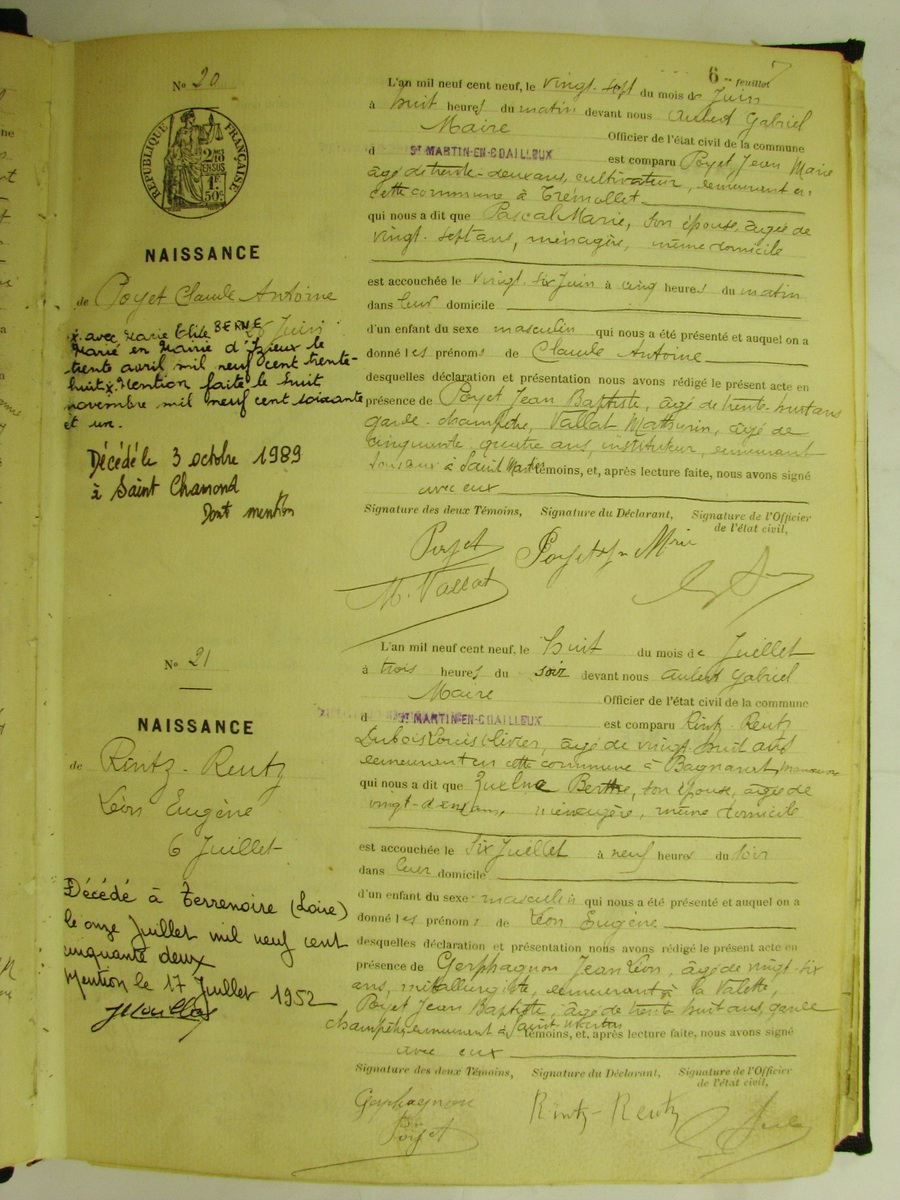 6 -- feuillet 7
No 20
RÉPUBLIQUE FRANÇAISE
NAISSANCE
de Poyet Claude Antoine
26 Juin
x. avec Marie Elise BERNE
Marié en Mairie d'Izieux le
trente avril mil neuf cent trente-
huit x. Mention faite le huit
novembre mil neuf cent soixante
et un.
Décédé le 3 octobre 1989
à Saint Chamond
Dont mention
L'an mil neuf cent neuf, le vingt-sept du mois de Juin
à huit heures du matin devant nous Aubert Gabriel
Maire Officier de l'état civil de la commune
d St MARTIN-EN-COAILLEUX est comparu Poyet Jean Marie
âgé de trente-deux ans, cultivateur, demeurant en
cette commune à Trémollet
qui nous a dit que Pascal Marie, son épouse, âgée de
vingt-sept ans, ménagère, même domicile
est accouchée le vingt-six Juin à cinq heures du matin
dans leur domicile
d'un enfant du sexe masculin qui nous a été présenté et auquel on a
donné les prénoms de Claude Antoine
desquelles déclaration et présentation nous avons rédigé le présent acte en
présence de Poyet Jean Baptiste, âgé de trente-huit ans
garde-champêtre, Vallat Mathurin, âgé de
cinquante quatre ans, instituteur, demeurant
tous deux à Saint Martin témoins, et, après lecture faite, nous avons signé
avec eux
Signature des deux Témoins, Signature du Déclarant, Signature de l'Officier
de l'état civil,
Poyet Poyet Jn Marie
M. Vallat
No 21
NAISSANCE
de Rintz-Reutz
Léon Eugène
6 Juillet
Décédé à Terrenoire (Loire)
le onze Juillet mil neuf cent
cinquante deux
Mention le 17 Juillet 1952
L'an mil neuf cent neuf, le huit du mois de Juillet
à trois heures du soir devant nous Aubert Gabriel
Maire Officier de l'état civil de la commune
d St MARTIN-EN-COAILLEUX est comparu Rintz-Reutz
Dubois Louis Olivier, âgé de vingt-huit ans
demeurant en cette commune à
qui nous a dit que Berthe, son épouse, âgée de
vingt-deux ans, ménagère, même domicile
est accouchée le six Juillet à neuf heures du soir
dans leur domicile
d'un enfant du sexe masculin qui nous a été présenté et auquel on a
donné les prénoms de Léon Eugène
desquelles déclaration et présentation nous avons rédigé le présent acte en
présence de Gerphagnon Jean Léon, âgé de vingt-six
ans, métallurgiste, demeurant à la Valette,
Poyet Jean Baptiste, âgé de trente huit ans, garde
champêtre, demeurant à Saint Martin témoins, et, après lecture faite, nous avons signé
avec eux
Signature des deux Témoins, Signature du Déclarant, Signature de l'Officier
de l'état civil,
Gerphagnon Rintz-Reutz
Poyet